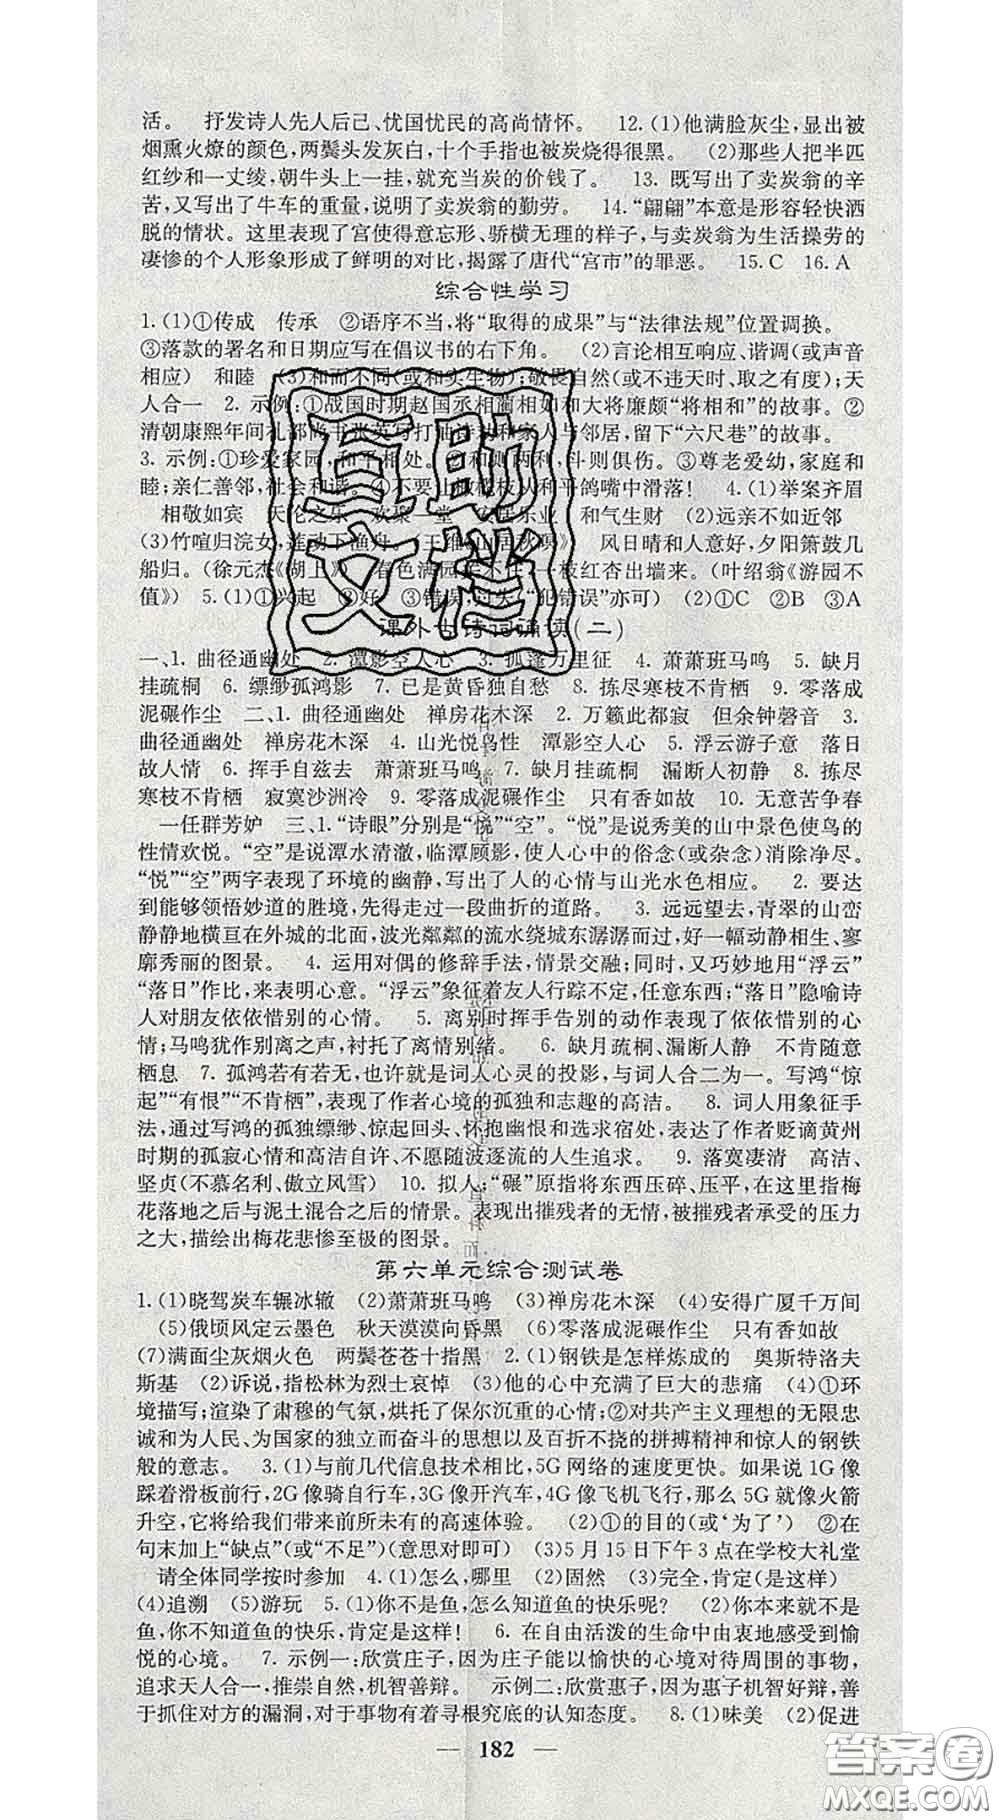 活。 抒发诗人先人后己、忧国忧民的高尚情怀。 12.(1)他满脸灰尘,显出被
烟熏火燎的颜色,两鬓头发灰白,十个手指也被炭烧得很黑。 (2)那些人把半匹
红纱和一丈绫,朝牛头上一挂,就充当炭的价钱了。 13. 既写出了卖炭翁的辛
苦,又写出了牛车的重量,说明了卖炭翁的勤劳。 14.“翩翩”本意是形容轻快洒
脱的情状。这里表现了宫使得意忘形、骄横无理的样子,与卖炭翁为生活操劳的
凄惨的个人形象形成了鲜明的对比,揭露了唐代“宫市”的罪恶。 15.C 16.A
综合性学习
1.(1)①传成 传承 ②语序不当,将“取得的成果”与“法律法规”位置调换。
③落款的署名和日期应写在倡议书的右下角。 (2)言论相互响应、谐调(或声音
相应) 和睦 (3)和而不同(或和实生物);敬畏自然(或不违天时、取之有度);天
人合一 2. 示例:①战国时期赵国丞相蔺相如和大将廉颇“将相和”的故事。②
清朝康熙年间礼部尚书张英写打油诗 和 与邻居,留下“六尺巷”的故事。
3. 示例:①珍爱家园,和平相处。②和则两利,斗则俱伤。③尊老爱幼,家庭和
睦;亲仁善邻,社会和谐。④不要让橄榄枝从和平鸽嘴中滑落! 4.(1)举案齐眉
相敬如宾 天伦之乐 欢聚一堂 安居乐业 和气生财 (2)远亲不如近邻
(3)竹喧归浣女,莲动下渔舟。(王维《山居秋暝》) 风日晴和人意好,夕阳箫鼓几
船归。(徐元杰《湖上》) 春色满园关不住,一枝红杏出墙来。(叶绍翁《游园不
值》) 5.(1)①兴起 ②好 ③错误,过失(“犯错误”亦可) (2)①C ②B ③A
课外古诗词诵读(二)
一、1. 曲径通幽处 2. 潭影空人心 3. 孤蓬万里征 4. 萧萧班马鸣 5. 缺月
挂疏桐 6. 缥缈孤鸿影 7. 已是黄昏独自愁 8. 拣尽寒枝不肯栖 9. 零落成
泥碾作尘 二、1. 曲径通幽处 禅房花木深 2. 万籁此都寂 但余钟磬音 3.
曲径通幽处 禅房花木深 4. 山光悦鸟性 潭影空人心 5. 浮云游子意 落日
故人情 6. 挥手自兹去 萧萧班马鸣 7. 缺月挂疏桐 漏断人初静 8. 拣尽
寒枝不肯栖 寂寞沙洲冷 9. 零落成泥碾作尘 只有香如故 10. 无意苦争春
一任群芳妒 三、1.“诗眼”分别是“悦”“空”。“悦”是说秀美的山中景色使鸟的
性情欢悦。“空”是说潭水清澈,临潭顾影,使人心中的俗念(或杂念)消除净尽。
“悦”“空”两字表现了环境的幽静,写出了人的心情与山光水色相应。 2. 要达
到能够领悟妙道的胜境,先得走过一段曲折的道路。 3. 远远望去,青翠的山峦
静静地横亘在外城的北面,波光粼粼的流水绕城东潺潺而过,好一幅动静相生、寥
廓秀丽的图景。 4. 运用对偶的修辞手法,情景交融;同时,又巧妙地用“浮云”
“落日”作比,来表明心意。“浮云”象征着友人行踪不定,任意东西;“落日”隐喻诗
人对朋友依依惜别的心情。 5. 离别时挥手告别的动作表现了依依惜别的心
情;马鸣犹作别离之声,衬托了离情别绪。 6. 缺月疏桐、漏断人静 不肯随意
栖息 7. 孤鸿若有若无,也许就是词人心灵的投影,与词人合二为一。写鸿“惊
起”“有恨”“不肯栖”,表现了作者心境的孤独和志趣的高洁。 8. 词人用象征手
法,通过写鸿的孤独缥缈、惊起回头、怀抱幽恨和选求宿处,表达了作者贬谪黄州
时期的孤寂心情和高洁自许、不愿随波逐流的人生追求。 9. 落寞凄清 高洁、
坚贞(不慕名利、傲立风雪) 10. 拟人;“碾”原指将东西压碎、压平,在这里指梅
花落地之后与泥土混合之后的情景。表现出摧残者的无情,被摧残者承受的压力
之大,描绘出梅花悲惨至极的图景。
第六单元综合测试卷
1.(1)晓驾炭车辗冰辙 (2)萧萧班马鸣 (3)禅房花木深 (4)安得广厦千万间
(5)俄顷风定云墨色 秋天漠漠向昏黑 (6)零落成泥碾作尘 只有香如故
(7)满面尘灰烟火色 两鬓苍苍十指黑 2.(1)钢铁是怎样炼成的 奥斯特洛夫
斯基 (2)诉说,指松林为烈士哀悼 (3)他的心中充满了巨大的悲痛 (4)①环
境描写;渲染了肃穆的气氛,烘托了保尔沉重的心情;②对共产主义理想的无限忠
诚和为人民、为国家的独立而奋斗的思想以及百折不挠的拼搏精神和惊人的钢铁
般的意志。 3.(1)与前几代信息技术相比,5G网络的速度更快。如果说1G像
踩着滑板前行,2G像骑自行车,3G像开汽车,4G像飞机飞行,那么5G就像火箭
升空,它将给我们带来前所未有的高速体验。 (2)①的目的(或‘为了’) ②在
句末加上“缺点”(或“不足”)(意思对即可) (3)5月15日下午3点在学校大礼堂
请全体同学按时参加 4.(1)怎么,哪里 (2)固然 (3)完全,肯定(是这样)
(4)追溯 (5)游玩 5.(1)你不是鱼,怎么知道鱼的快乐呢? (2)你本来就不是
鱼,你不知道鱼的快乐,肯定是这样! 6. 在自由活泼的生命中由衷地感受到愉
悦的心境。 7. 示例一:欣赏庄子,因为庄子能以愉快的心境对待周围的事物,
追求天人合一,推崇自然,机智善辩。 示例二:欣赏惠子,因为惠子机智好辩,善
于抓住对方的漏洞,对于事物有着寻根究底的认知态度。 8.(1)味美 (2)促进
— 182 —
互助
文档
答案圈
MXQE.COM